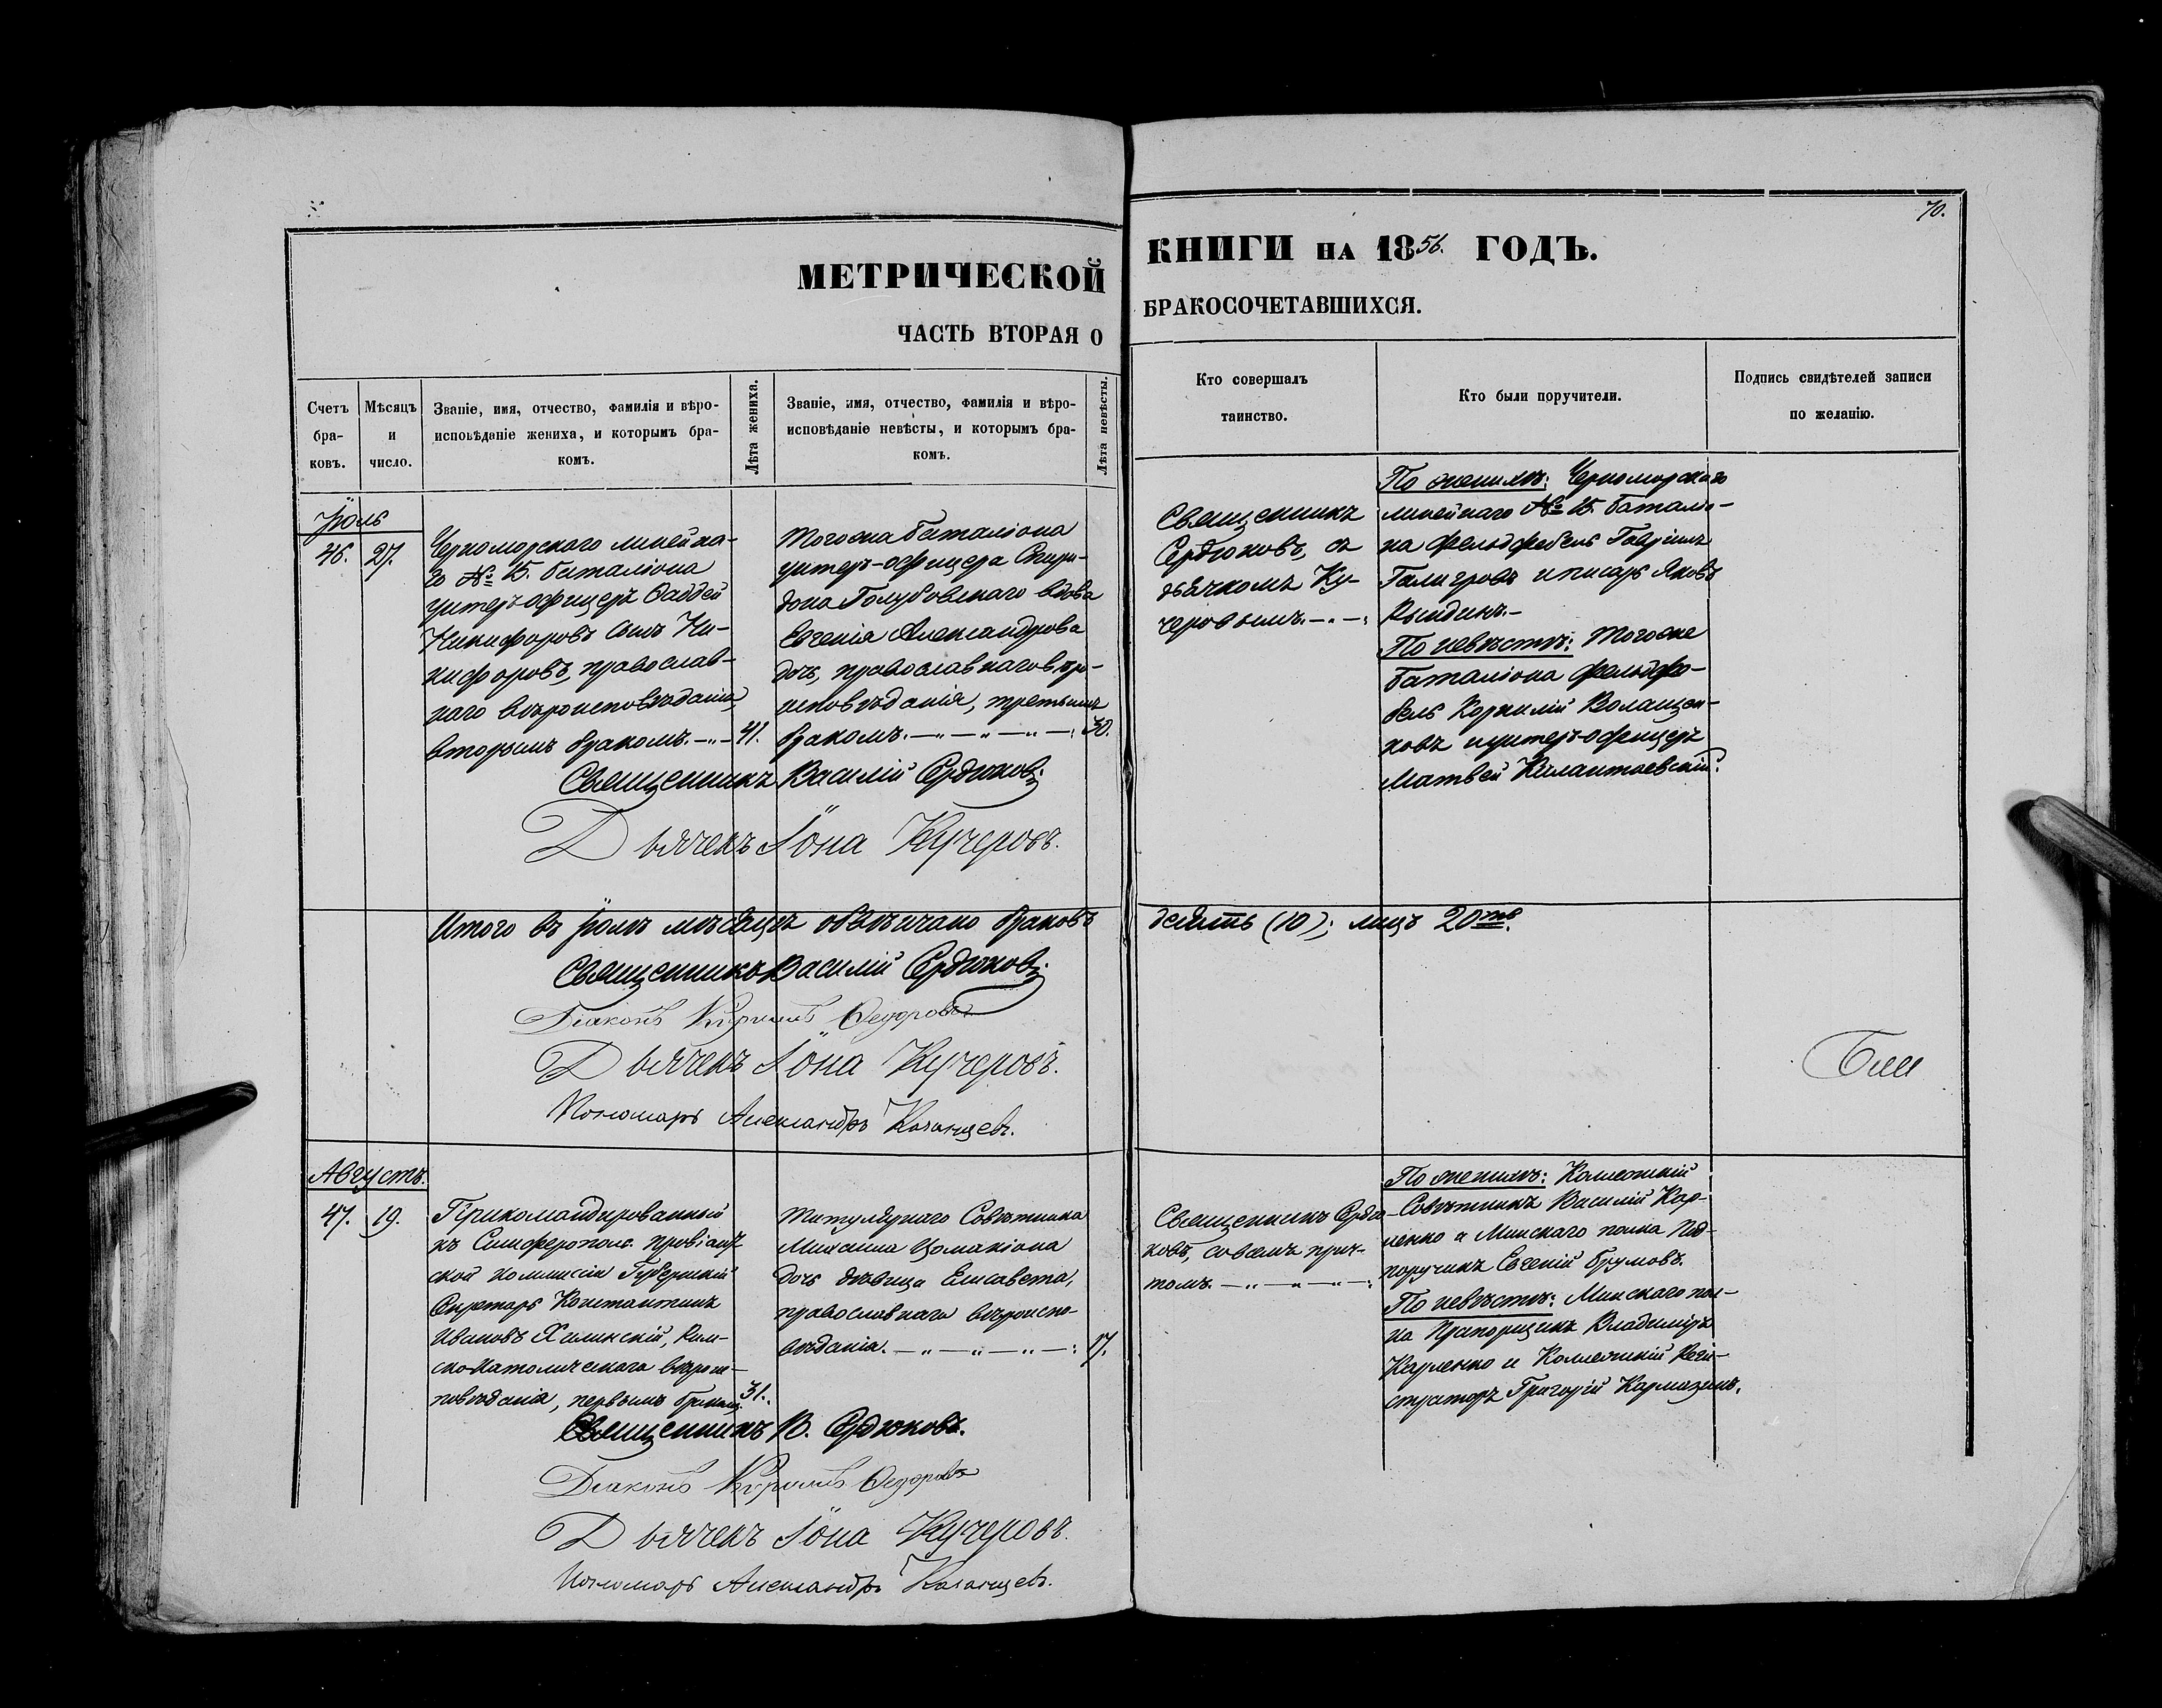 70.
МЕТРИЧЕСКОЙ
КНИГИ НА 1856. ГОДЪ.
ЧАСТЬ ВТОРАЯ О
БРАКОСОЧЕТАВШИХСЯ.
Счетъ бра-ковъ.
Мѣсяцъ и число.
Званіе, имя, отчество, фамилія и вѣро-
исповѣданіе жениха, и которымъ бра-
комъ.
Лѣта жениха.
Званіе, имя, отчество, фамилія и вѣро-
исповѣданіе невѣсты, и которымъ бра-
комъ.
Лѣта невѣсты.
Кто совершалъ
таинство.
Кто были поручители.
Подпись свидѣтелей записи
по желанію.
Іюль
46. 27.
Черноморскаго линейна-
го № 15. баталіона
унтеръ-офицеръ Фаддей
Никифоровъ сынъ Ни-
кифоровъ, православ-
наго вѣроисповѣданія,
вторымъ бракомъ. — „ —
41.
Тогоже баталіона
унтеръ-офицера Спири-
дона Голубовскаго вдова
Евгенія Александрова
дочь, православнаго вѣро-
исповѣданія, третьимъ
бракомъ. — „ — „ — „ — :
30.
Священникъ
Сердюковъ, съ
дьячкомъ Ку-
черовымъ. — „ — :
По женихѣ: Черноморскаго
линейнаго № 15. баталіо-
на фельдфебель Гавріилъ
и писарь Яковъ
По невѣстѣ: Тогоже
баталіона фельдфе-
бель Корнилій
ковъ и унтеръ-офицеръ
Матвей
Священникъ Василій Сердюковъ.
Дьячекъ Іона Кучеровъ.
Итого въ Іюлѣ мѣсяцѣ обвѣнчано браковъ
десять (10); лицъ 20ть.
Священникъ Василій Сердюковъ.
Діаконъ Кирилъ Федоровъ
Дьячекъ Іона Кучеровъ.
Пономарь Александръ Казанцевъ.
Августъ.
47. 19.
Прикомандированный
къ Симферопол. провіант-
ской коммисіи Губернскій
Секретарь Константинъ
Ивановъ Хилинскій, Рим-
ско-Католическаго вѣроис-
повѣданія, первымъ бракомъ.
31.
Титулярнаго Совѣтника
Михаила Цомакіона
дочь дѣвица Елисавета,
православнаго вѣроиспо-
вѣданія. — „ — „ — „ — :
17.
Священникъ Сердю-
ковъ, со всемъ прич-
томъ. — „ — „ — „ — :
По женихѣ: Коллежскій
Совѣтникъ Василій Кар-
ленко и Минскаго полка Под-
поручикъ Евгеній Брумовъ.
По невѣстѣ: Минскаго пол-
ка Прапорщикъ Владиміръ
Карленко и Коллежскій Реги-
страторъ Григорій Кармазинъ.
Священникъ В. Сердюковъ.
Діаконъ Кирилъ Федоровъ
Дьячекъ Іона Кучеровъ.
Пономарь Александръ Казанцевъ.